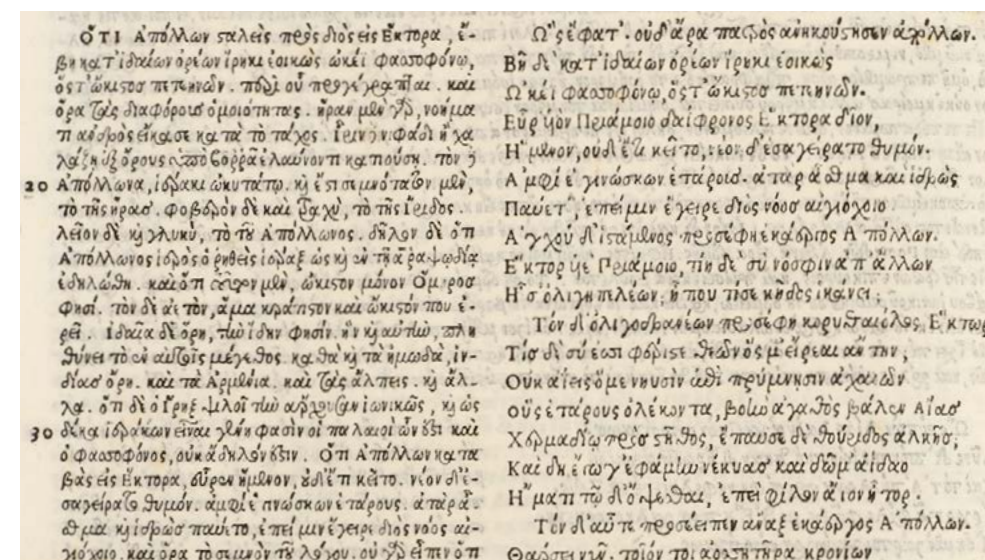 ΟΤΙ Απόλλων σταλεὶς πρὸς διὸς εἰς Εκτορα, ἔ-
βη κατ ἰδαίων ὀρέων ἴρηκι ἐοικὼς ὠκέϊ φασσοφόνῳ,
ὅς τ ὤκιστος πετεηνῶν. προγέγραπται. καὶ
ὅρα τὰς διαφόρους ὁμοιότητας. ἥραν μὲν γὰρ, νοήμα
τι ἀνδρὸς εἴκασε κατὰ τὸ τάχος. νιφάδι ἢ χα
λάζῃ ἐξ ὄρους βορρᾶ τὸν δὲ
20 Απόλλωνα, ἱέρακι ὠκυτάτῳ. καὶ ἔστι σεμνότατον μὲν,
τὸ τῆς ἥρας. φοβερὸν δὲ καὶ τραχὺ, τὸ τῆς Ιριδος.
λεῖον δὲ καὶ γλυκὺ, τὸ τοῦ Απόλλωνος. δῆλον δὲ ὅτι
Απόλλωνος ἱερὸς ὁ ῥηθεὶς ἱέραξ ὡς καὶ ἐν τῇ α ῥαψωδία
ἐδηλώθη. καὶ ὅτι μὲν, ὤκιστον μόνον Ομηρος
φησί. τὸν δὲ αἰετὸν, ἅμα κράτιστον καὶ ὤκιστόν που ἐ-
ρεῖ. Ιδαῖα δὲ ὄρη, τὴν ἴδην φησὶν. ἣν καὶ αὐτὴν, πλη
θύνει τὸ ἐν αὐταῖς μέγεθος. καθὰ καὶ τὰ ἡμωδὰ, ἰν-
δίας ὄρη. καὶ τὰ Αρμένια. καὶ τὰς ἄλπεις. καὶ ἄλ-
λα. ὅτι δὲ ὁ ἴρηξ ψιλοῖ τὴν ἄρχουσαν ἰωνικῶς, καὶ ὡς
30 δέκα ἱεράκων εἶναι γένη φασὶν οἱ παλαιοὶ ὧν ἐστι καὶ
ὁ φασσοφόνος, οὐκ ἄδηλόν ἐστιν. Οτι Απόλλων κατα
βὰς εἰς Εκτορα, εὗρεν ἥμενον, οὐδ ἔτι κεῖτο. νέον δ ἐ-
σαγείρατο θυμόν. ἀμφὶ ἓ γινώσκων ἑτάρους. ἀτὰρ ἆ-
σθμα καὶ ἱδρὼς παύετο, ἐπεί μιν ἔγειρε διὸς νόος αἰ-
γιόχοιο. καὶ ὅρα τὸ σεμνὸν τοῦ λόγου. οὐ γὰρ εἶπεν ὅτι
Ω ς ἔφατ. οὐδ ἄρα πατρὸς ἀνηκούστησεν ἀπόλλων.
Βῆ δὲ κατ ἰδαίων ὀρέων ἴρηκι ἐοικὼς
Ω κέϊ φασσοφόνῳ, ὅς τ ὤκιστος πετεηνῶν.
Εὗρ υἱὸν Πριάμοιο δαΐφρονος Εκτορα δῖον,
Η μενον, οὐδ ἔτι κεῖτο, νέον δ ἐσαγείρατο θυμόν.
Α μφὶ ἓ γινώσκων ἑτάρους. ἀτὰρ ἆσθμα καὶ ἱδρὼς
Παύετ, ἐπεί μιν ἔγειρε διὸς νόος αἰγιόχοιο
Α γχοῦ δ ἱστάμενος προσέφη ἑκάεργος Απόλλων.
Εκτορ υἱὲ Πριάμοιο, τίη δὲ σὺ νόσφιν ἀπ ἄλλων
Η σ ὀλιγηπελέων, ἦ πού τί σε κῆδος ἱκάνει;
Τὸν δ ὀλιγοδρανέων προσέφη κορυθαίολος Εκτωρ
Τίς δὲ σύ ἐσσι φέριστε θεῶν ὅς μ εἴρεαι ἄντην,
Ουκ ἀΐεις ὅ με νηυσὶν ἐπὶ πρύμνῃσιν ἀχαιῶν
οὓς ἑτάρους ὀλέκοντα, βοὴν ἀγαθὸς βάλεν Αἴας
Χερμαδίῳ πρὸς στῆθος, ἔπαυσε δὲ θούριδος ἀλκῆς,
Καὶ δὴ ἔγωγ ἐφάμην νέκυας καὶ δῶμ ἀΐδαο
Η ματι τῷδ ὄψεσθαι, ἐπεὶ φίλον ἄϊον ἦτορ.
Τὸν δ αὖτε προσέειπεν ἄναξ ἑκάεργος Απόλλων.
Θάρσει νῦν. τοῖόν τοι ἀοσσητῆρα κρονίων